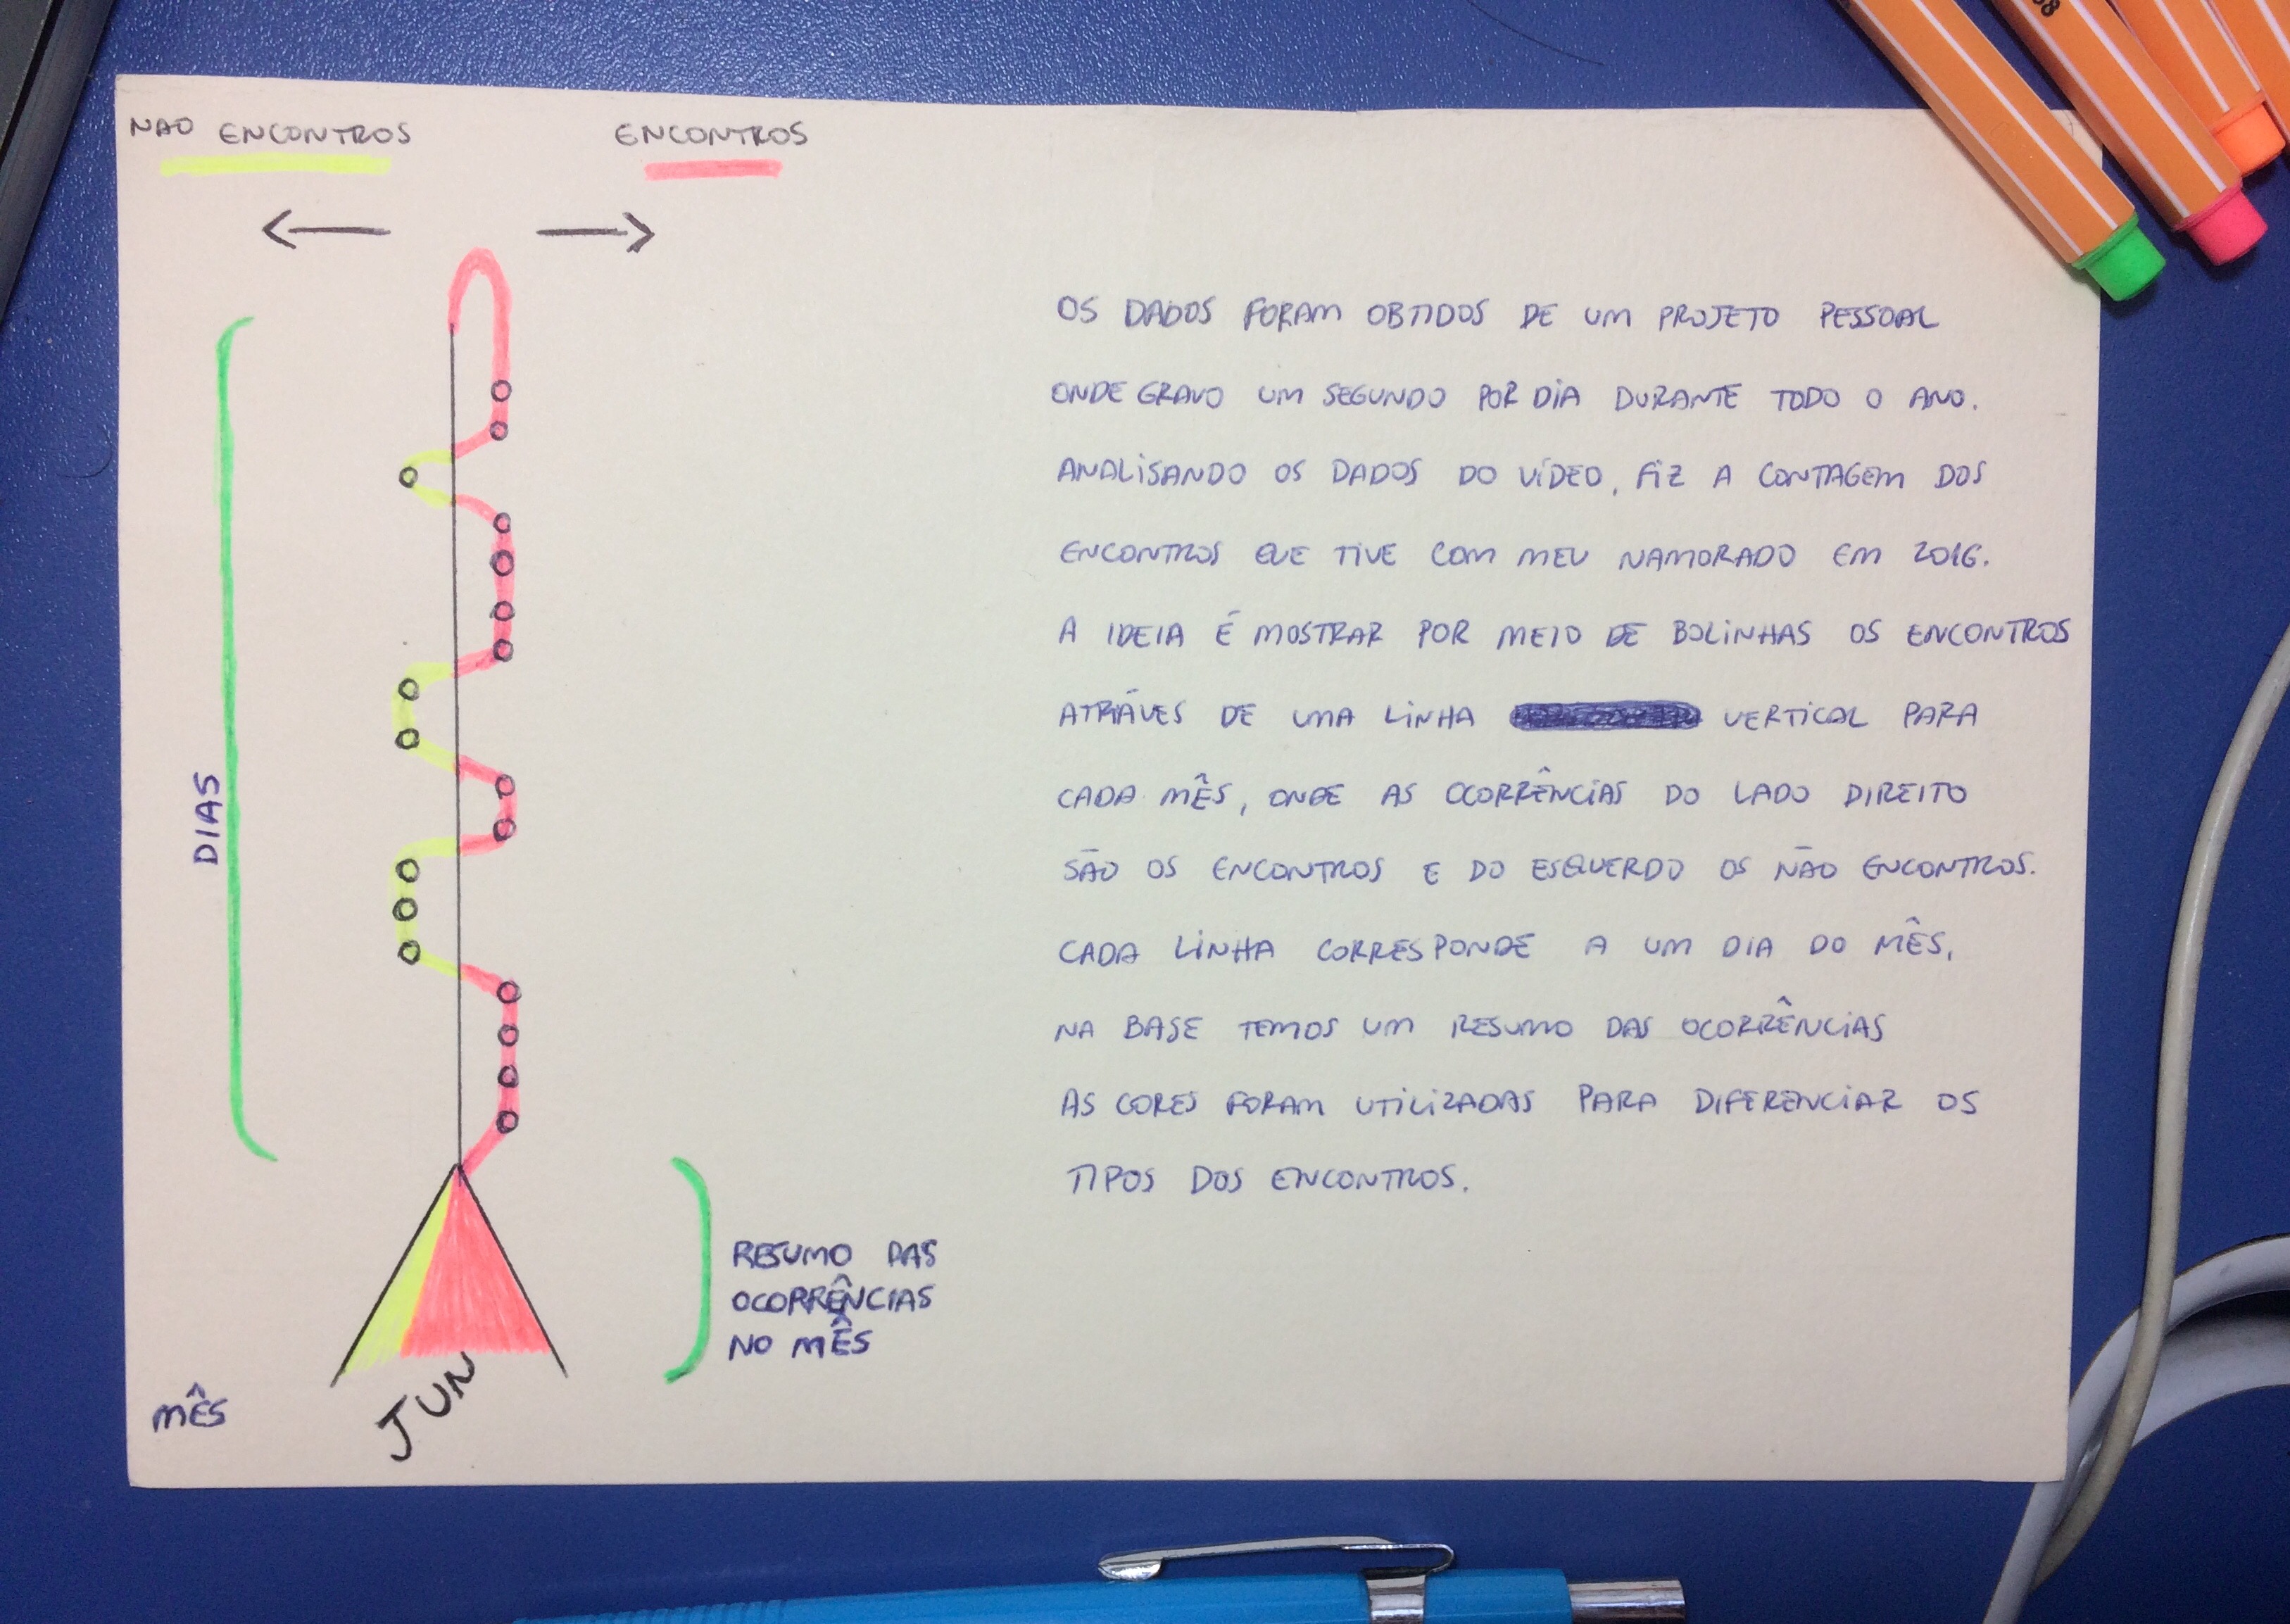 NAO ENCONTROS
ENCONTROS
DIAS
RESUMO DAS
OCORRÊNCIAS
NO MÊS
MÊS
JUN
OS DADOS FORAM OBTIDOS DE UM PROJETO PESSOAL
ONDE GRAVO UM SEGUNDO POR DIA DURANTE TODO O ANO.
ANALISANDO OS DADOS DO VÍDEO, FIZ A CONTAGEM DOS
ENCONTROS QUE TIVE COM MEU NAMORADO EM 2016.
A IDEIA É MOSTRAR POR MEIO DE BOLINHAS OS ENCONTROS
ATRÁVES DE UMA LINHA VERTICAL PARA
CADA MÊS, ONDE AS OCORRÊNCIAS DO LADO DIREITO
SÃO OS ENCONTROS E DO ESQUERDO OS NÃO ENCONTROS.
CADA LINHA CORRESPONDE A UM DIA DO MÊS.
NA BASE TEMOS UM RESUMO DAS OCORRÊNCIAS
AS CORES FORAM UTILIZADAS PARA DIFERENCIAR OS
TIPOS DOS ENCONTROS.